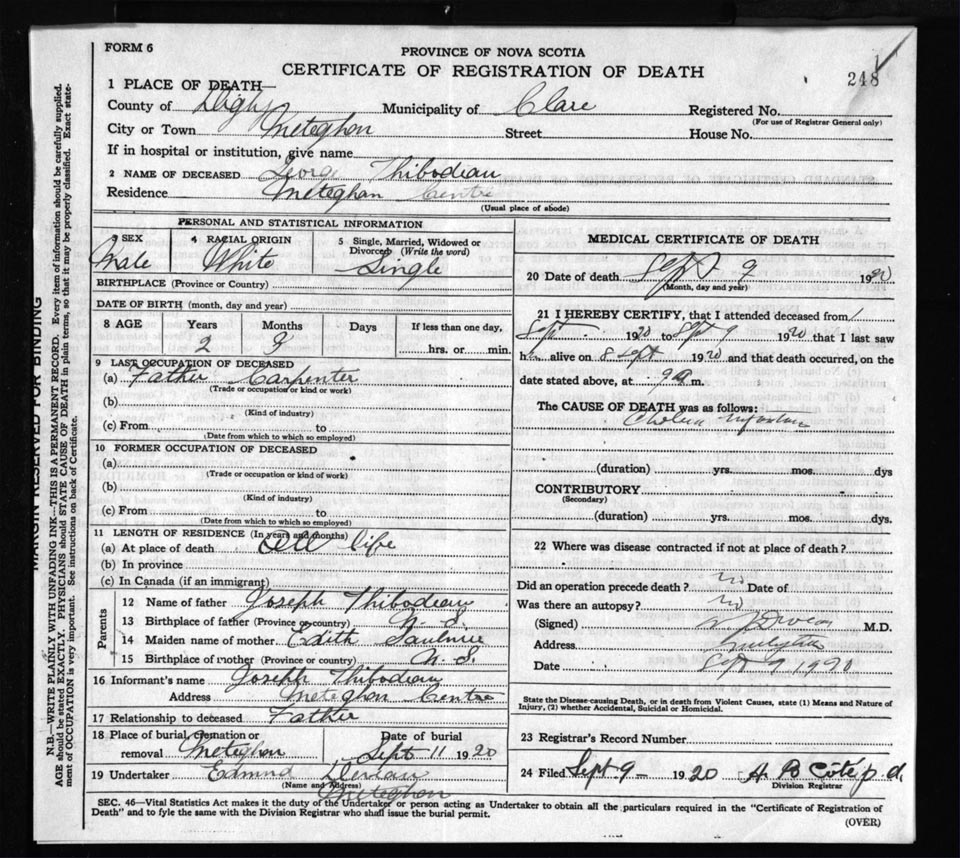 FORM 6
PROVINCE OF NOVA SCOTIA
CERTIFICATE OF REGISTRATION OF DEATH
248
1 PLACE OF DEATH—
County of Digby Municipality of Clare Registered No.
(For use of Registrar General only)
City or Town Meteghan Street House No.
If in hospital or institution, give name
2 NAME OF DECEASED George Thibodeau
Residence Meteghan Centre
(Usual place of abode)
PERSONAL AND STATISTICAL INFORMATION
3 SEX 4 RACIAL ORIGIN 5 Single, Married, Widowed or Divorced (Write the word)
Male White Single
BIRTHPLACE (Province or Country)
DATE OF BIRTH (month, day and year)
8 AGE Years Months Days If less than one day,
2 3 hrs. or min.
9 LAST OCCUPATION OF DECEASED
(a) Father Carpenter
(Trade or occupation or kind or work)
(b)
(Kind of industry)
(c) From to
(Date from which to which so employed)
10 FORMER OCCUPATION OF DECEASED
(a)
(Trade or occupation or kind of work)
(b)
(Kind of industry)
(c) From to
(Date from which to which so employed)
11 LENGTH OF RESIDENCE (In years and months)
(a) At place of death All life
(b) In province
(c) In Canada (if an immigrant)
Parents
12 Name of father Joseph Thibodeau
13 Birthplace of father (Province or country) N. S.
14 Maiden name of mother Edith Saulnier
15 Birthplace of mother (Province or country) N. S.
16 Informant's name Joseph Thibodeau
Address Meteghan Centre
17 Relationship to deceased Father
18 Place of burial, cremation or removal Meteghan Date of burial Sept 11 1920
19 Undertaker Edmund
(Name and Address)
Meteghan
MEDICAL CERTIFICATE OF DEATH
20 Date of death Sept 9 1920
(Month, day and year)
21 I HEREBY CERTIFY, that I attended deceased from
Sept 1920 to Sept 9 1920 that I last saw
h alive on 8 Sept 1920 and that death occurred, on the
date stated above, at 9 a m.
The CAUSE OF DEATH was as follows:
Cholera Infantum
(duration) yrs. mos. dys
CONTRIBUTORY
(Secondary)
(duration) yrs. mos. dys.
22 Where was disease contracted if not at place of death?
Did an operation precede death? no Date of
Was there an autopsy? no
(Signed) M.D.
Address
Date Sept 9 1920
State the Disease-causing Death, or in death from Violent Causes, state (1) Means and Nature of Injury, (2) whether Accidental, Suicidal or Homicidal.
23 Registrar's Record Number
24 Filed Sept 9 1920 A. B. Côté p. d.
Division Registrar
SEC. 46—Vital Statistics Act makes it the duty of the Undertaker or person acting as Undertaker to obtain all the particulars required in the "Certificate of Registration of
Death" and to fyle the same with the Division Registrar who shall issue the burial permit.
(OVER)
MARGIN RESERVED FOR BINDING
N.B.—WRITE PLAINLY WITH UNFADING INK—THIS IS A PERMANENT RECORD. Every item of information should be carefully supplied.
AGE should be stated EXACTLY. PHYSICIANS should STATE CAUSE OF DEATH in plain terms, so that it may be properly classified. Exact statement of OCCUPATION is very important. See instructions on back of Certificate.